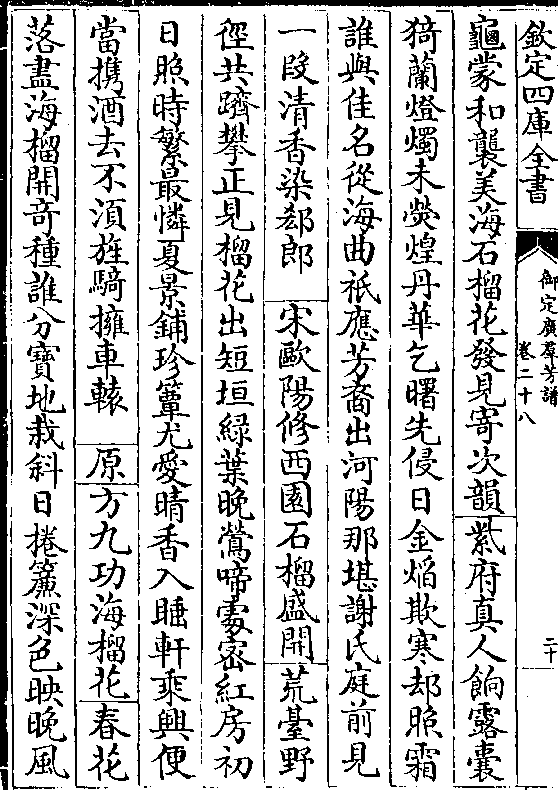 欽定四庫全書
御定廣羣芳譜
卷二十八
二十
龜蒙和襲美海石榴花發見寄次韻紫府真人餉露囊
猗蘭燈燭未熒煌丹華乞曙先侵日金焰欺寒却照霜
誰與佳名從海曲祇應芳裔出河陽那堪謝氏庭前見
一段清香染郄郎宋歐陽修西園石榴盛開荒臺野
徑共躋攀正見榴花出短垣緑葉晚鶯啼處密紅房初
日照時繁最憐夏景鋪珍簟尤愛晴香入睡軒乘興便
當攜酒去不湏旌騎擁車轅原方九功海榴花春花
落盡海榴開竒種誰分寶地栽斜日捲簾深色映晚風